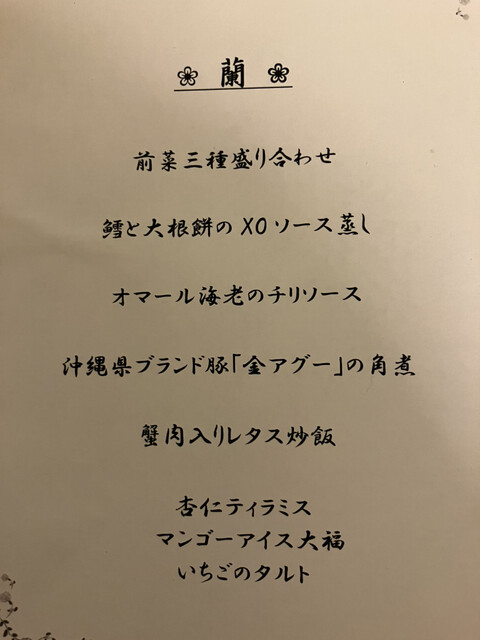 ❀ 蘭 ❀
前菜三種盛り合わせ
鱈と大根餅のXOソース蒸し
オマール海老のチリソース
沖縄県ブランド豚「金アグー」の角煮
蟹肉入りレタス炒飯
杏仁ティラミス
マンゴーアイス大福
いちごのタルト